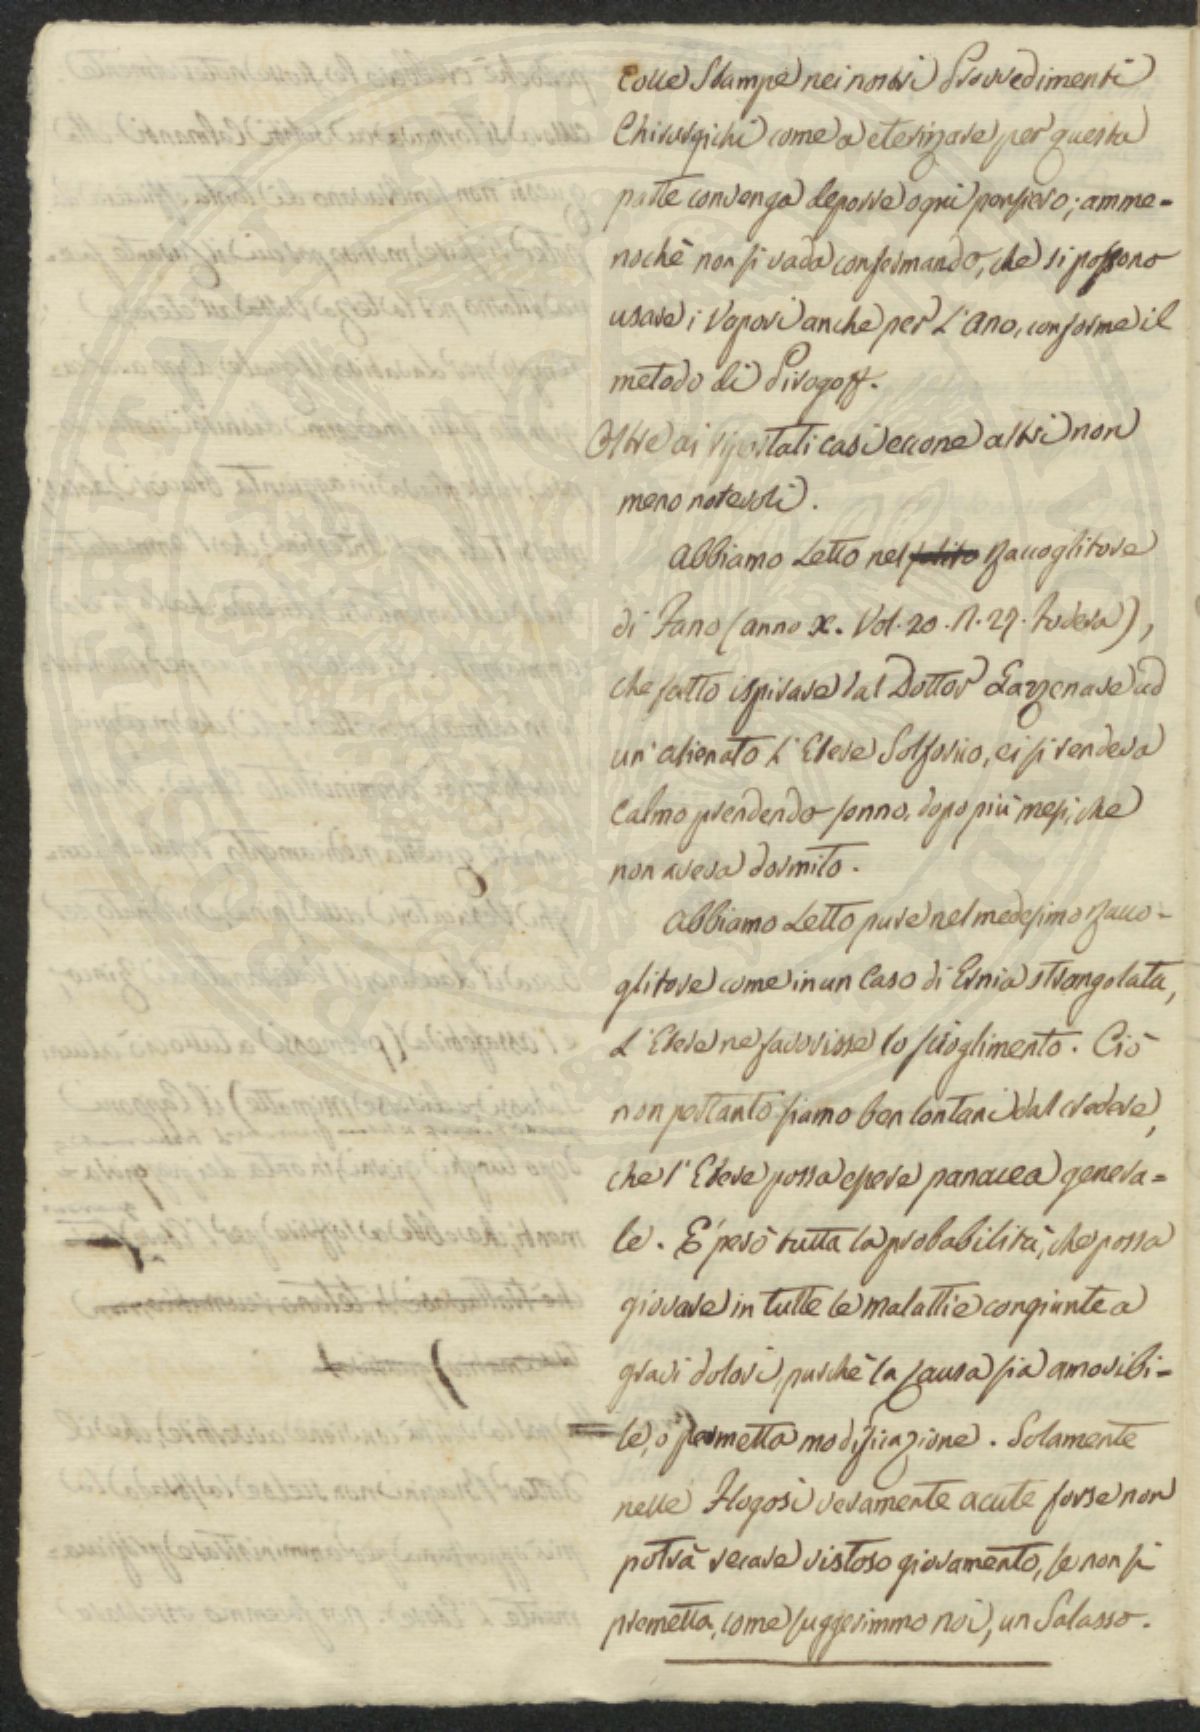 colle Stampe nei nostri Provvedimenti
Chirurgichi come a eterizzare per questa
parte convenga deporre ogni pensiero; amme-
nochè non si vada confermando, che si possono
usare i Vapori anche per L'Ano, conforme il
metodo di Pirogoff.
Oltre ai riportati casi eccone altri non
meno notevoli.
Abbiamo Letto nel solito Raccoglitore
di Fano (anno X. Vol. 20. N. 27. Fodera),
che fatto ispirare dal Dottor Cazenave ad
un' alienato L'Etere Solforico, ei si rendeva
Calmo prendendo sonno, dopo più mesi, che
non aveva dormito.
Abbiamo Letto pure nel medesimo Racco-
glitore come in un Caso di Ernia strangolata,
L'Etere ne favorisse lo scioglimento. Ciò
non pertanto siamo ben lontani dal credere,
che l'Etere possa essere panacea genera-
le. È però tutta la probabilità, che possa
giovare in tutte le Malattie congiunte a
gravi dolori, purchè la causa sia amovibi-
le, o permetta modificazione. Solamente
nelle Flogosi veramente acute forse non
potrà recare vistoso giovamento, se non si
premetta, come suggerimmo noi, un Salasso.